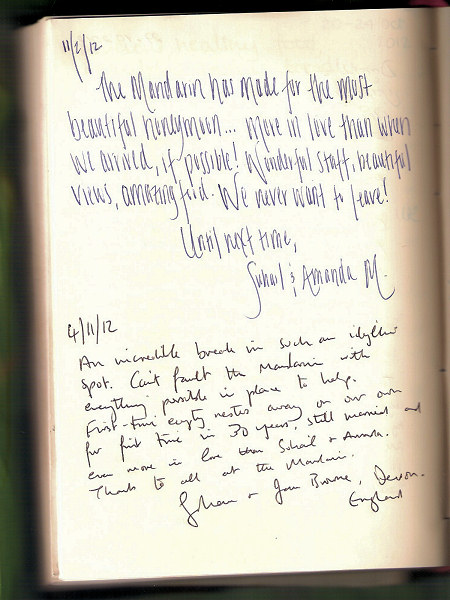 11/2/12
The Mandarin has made for the most
beautiful honeymoon... More in love than when
we arrived, if possible! Wonderful staff, beautiful
views, amazing food. We never want to leave!
Until next time,
Suhail & Amanda M.
4/11/12
An incredible break in such an idyllic
spot. Can't fault the Mandarin with
everything possible in place to help.
First-time empty nesters away on our own
for first time in 30 years, still married and
even more in love than Suhail &
Thanks to all at the Mandarin.
& Browne, Devon.
England